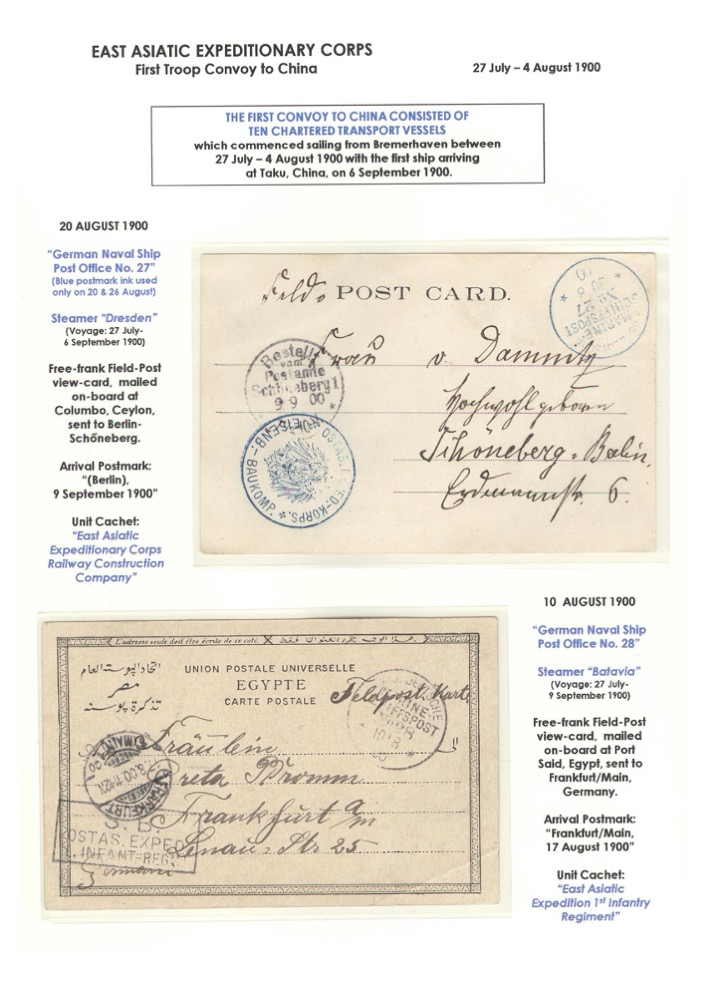 EAST ASIATIC EXPEDITIONARY CORPS
First Troop Convoy to China
27 July – 4 August 1900
THE FIRST CONVOY TO CHINA CONSISTED OF
TEN CHARTERED TRANSPORT VESSELS
which commenced sailing from Bremerhaven between
27 July – 4 August 1900 with the first ship arriving
at Taku, China, on 6 September 1900.
20 AUGUST 1900
"German Naval Ship
Post Office No. 27"
(Blue postmark ink used
only on 20 & 26 August)
Steamer "Dresden"
(Voyage: 27 July-
6 September 1900)
Free-frank Field-Post
view-card, mailed
on-board at
Columbo, Ceylon,
sent to Berlin-
Schőneberg.
Arrival Postmark:
"(Berlin),
9 September 1900"
Unit Cachet:
"East Asiatic
Expeditionary Corps
Railway Construction
Company"
Feld- POST CARD.
MARINE-
SCHIFFSPOST
No 27
20 8
00
Bestellt
vom
Postamte
Schöneberg 1
9 9 00
Frau v. Damnitz
Hochwohlgeboren
Schöneberg-Berlin.
Erdmannstr. 6.
OSTAS. EXPED-KORPS.
EISENB-BAUKOMP.
10 AUGUST 1900
"German Naval Ship
Post Office No. 28"
Steamer "Batavia"
(Voyage: 27 July-
9 September 1900)
Free-frank Field-Post
view-card, mailed
on-board at Port
Said, Egypt, sent to
Frankfurt/Main,
Germany.
Arrival Postmark:
"Frankfurt/Main,
17 August 1900"
Unit Cachet:
"East Asiatic
Expedition 1st Infantry
Regiment"
L'adresse seule doit être écrite de ce côté.
اتحاد البوستة العام
مصر
تذكرة بوستة
UNION POSTALE UNIVERSELLE
EGYPTE
CARTE POSTALE
Feldpost Karte
DEUTSCHE
MARINE-
SCHIFFSPOST
No 28
10 8
Fräulein
Greta Fromm
Frankfurt a/m
Lenau-Str 25
Germani
FRANKFURT
(MAIN)
S. B.
OSTAS. EXPED
1. INFANT=REGT